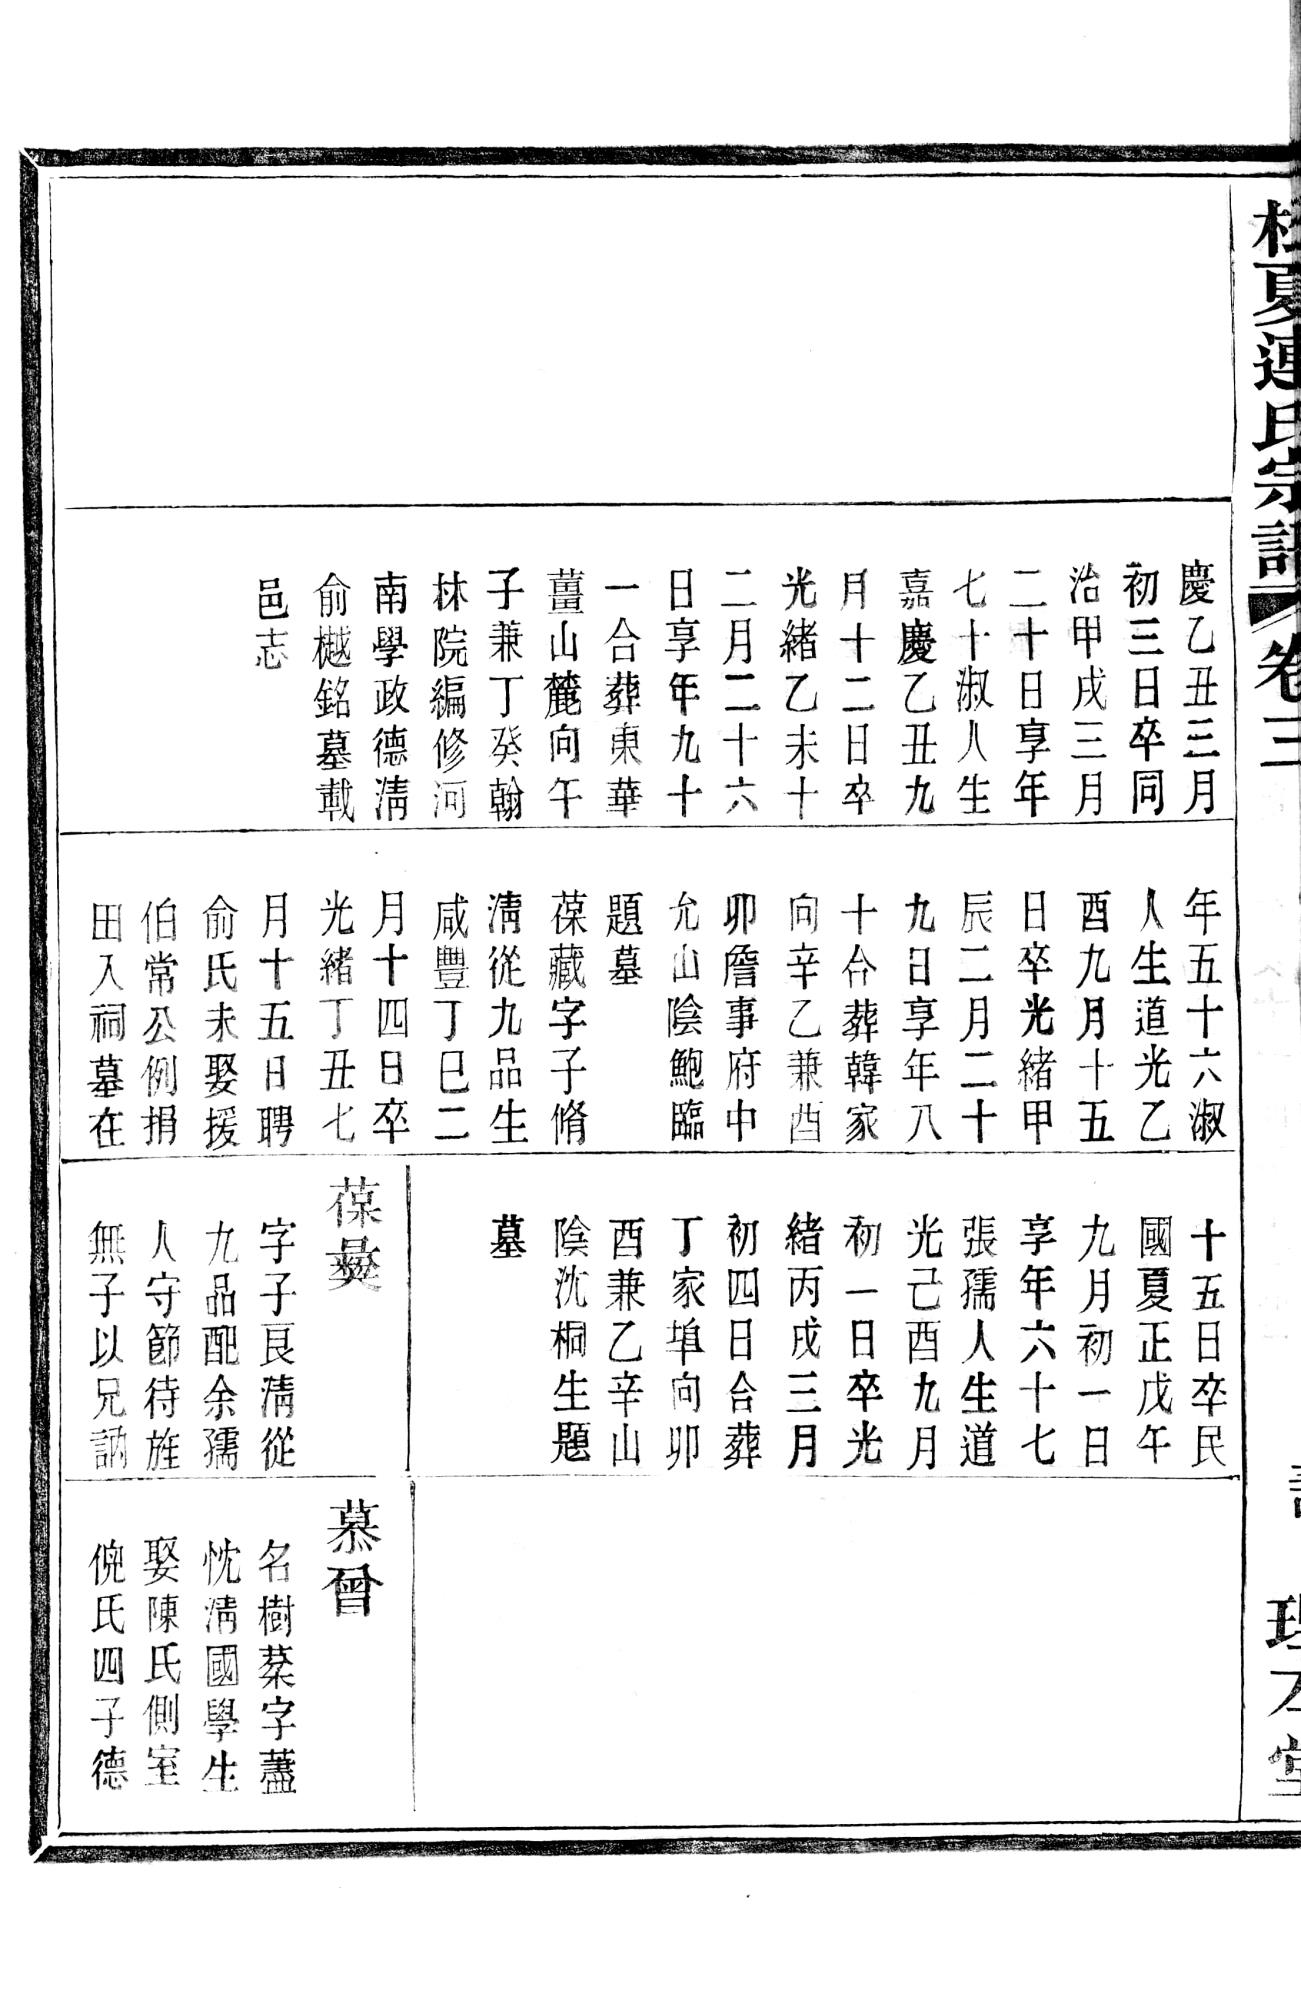 桂夏連氏宗譜 卷三
慶乙丑三月
初三日卒同
治甲戌三月
二十日享年
七十淑人生
嘉慶乙丑九
月十二日卒
光緒乙未十
二月二十六
日享年九十
一合葬東華
薑山麓向午
子兼丁癸翰
林院編修河
南學政德淸
俞樾銘墓載
邑志
年五十六淑
人生道光乙
酉九月十五
日卒光緒甲
辰二月二十
九日享年八
十合葬韓家
向辛乙兼酉
卯詹事府中
允山陰鮑臨
題墓
葆藏字子脩
淸從九品生
咸豐丁巳二
月十四日卒
光緒丁丑七
月十五日聘
俞氏未娶援
伯常公例捐
田入祠墓在
十五日卒民
國夏正戊午
九月初一日
享年六十七
張孺人生道
光己酉九月
初一日卒光
緒丙戌三月
初四日合葬
丁家埠向卯
酉兼乙辛山
陰沈桐生題
墓
葆彝
字子良淸從
九品配余孺
人守節待旌
無子以兄訥
慕曾
名樹棻字藎
忱淸國學生
娶陳氏側室
倪氏四子德
堂